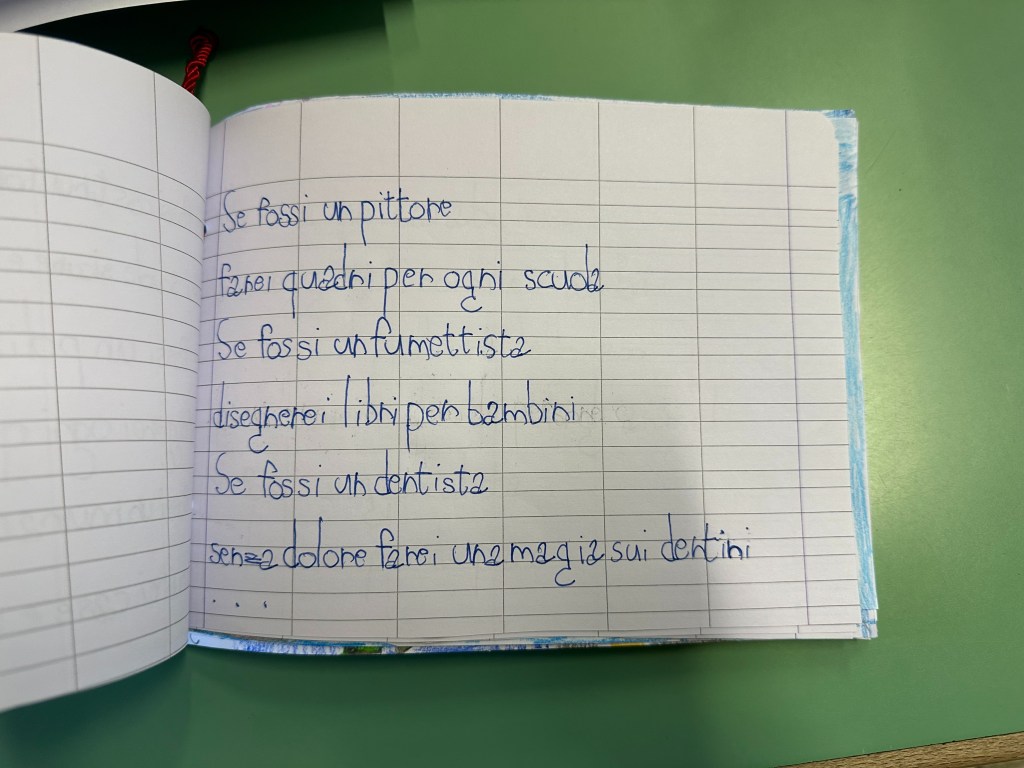 Se fossi un pittore
farei quadri per ogni scuola
Se fossi un fumettista
disegnerei libri per bambini
Se fossi un dentista
senza dolore farei una magia sui dentini
...